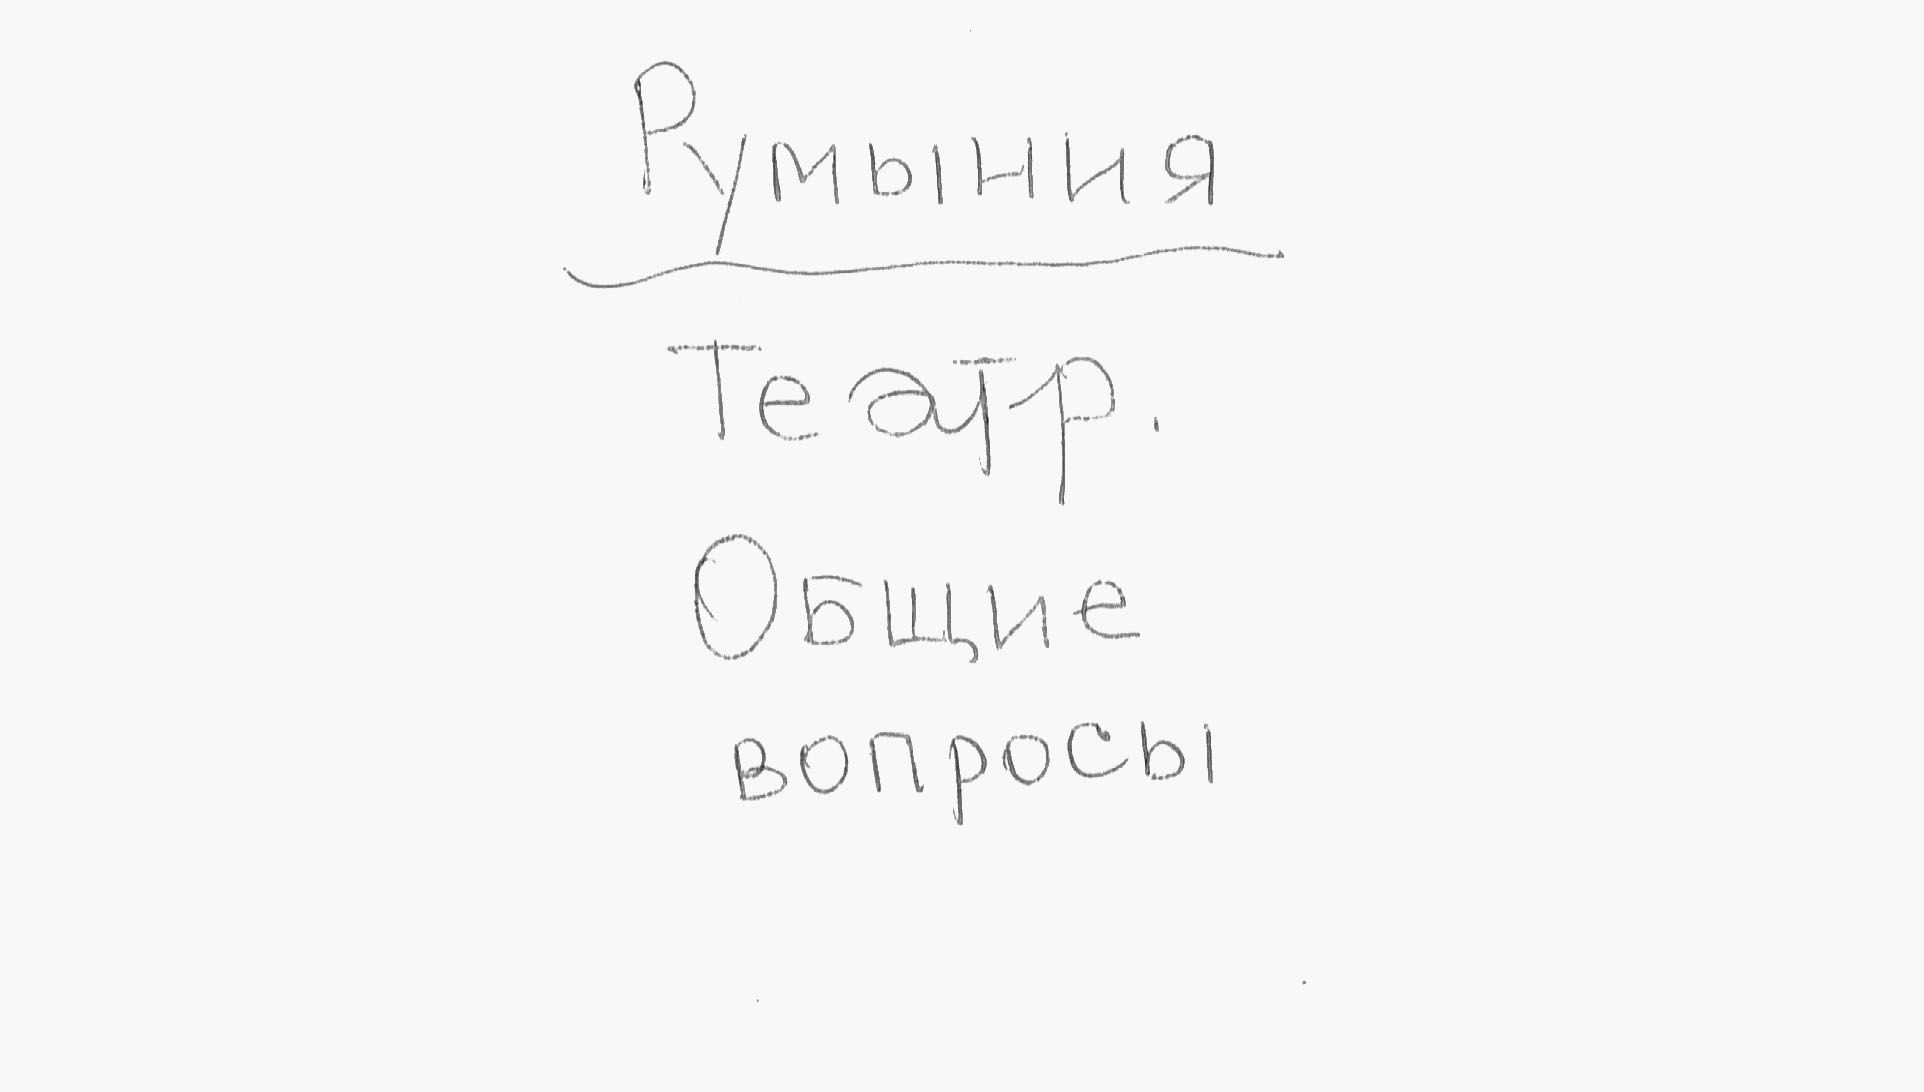 Румыния
Театр.
Общие
вопросы